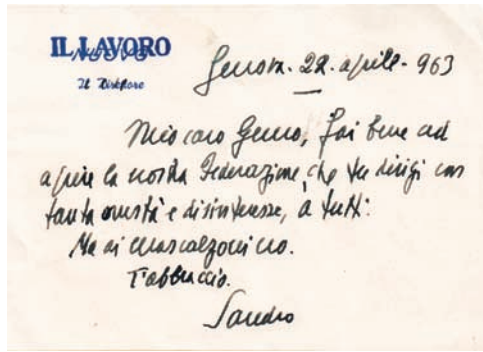 IL LAVORO
NUOVO
Il Direttore
Genova. 22. aprile. 963
Mio caro Gemo, fai bene ad
aprire la nostra Federazione, che tu dirigi con
tanta onestà e disinteresse, a tutti.
Ma ai mascalzoni no.
T'abbraccio.
Sandro